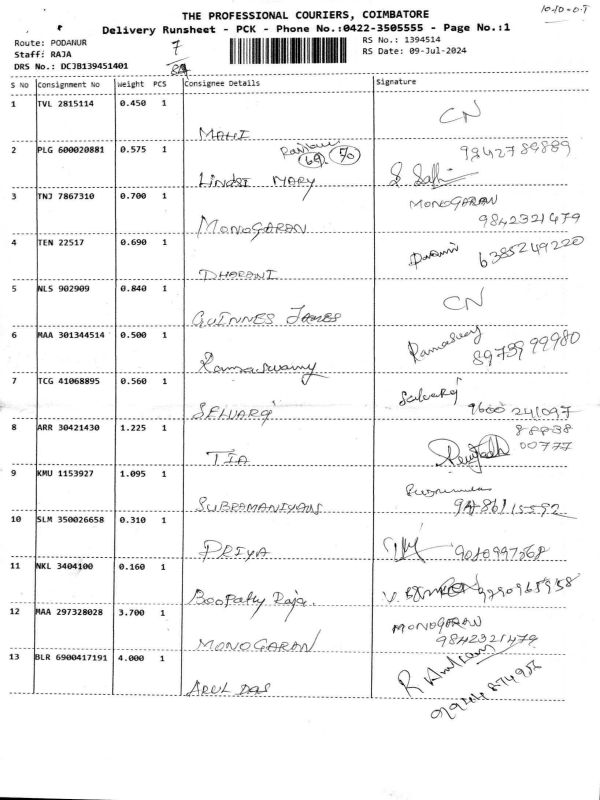 THE PROFESSIONAL COURIERS, COIMBATORE
Delivery Runsheet - PCK - Phone No.:0422-3505555 - Page No.:1
Route: PODANUR
Staff: RAJA
DRS No.: DCJB139451401
7
RS No.: 1394514
RS Date: 09-Jul-2024
S No Consignment No Weight PCS Consignee Details Signature
1 TVL 2815114 0.450 1 MAHI CN
2 PLG 600020881 0.575 1 LINDSI MARY 9842789889
3 TNJ 7867310 0.700 1 MONOGARAN MONOGARAN 9842321479
4 TEN 22517 0.690 1 DHARANI 6385249220
5 NLS 902909 0.840 1 GUINNES JAMES CN
6 MAA 301344514 0.500 1 Ramaswamy 8973999980
7 TCG 41068895 0.560 1 SELVARAJ Selvaraj 9600 241097
8 ARR 30421430 1.225 1 TIA 88838 00777
9 KMU 1153927 1.095 1 SUBRAMANIYAN
10 SLM 350026658 0.310 1 PRIYA
11 NKL 3404100 0.160 1 Boopathy Raja.
12 MAA 297328028 3.700 1 MONOGARAN MONOGARAN 9842321479
13 BLR 6900417191 4.000 1 ARUL DAS